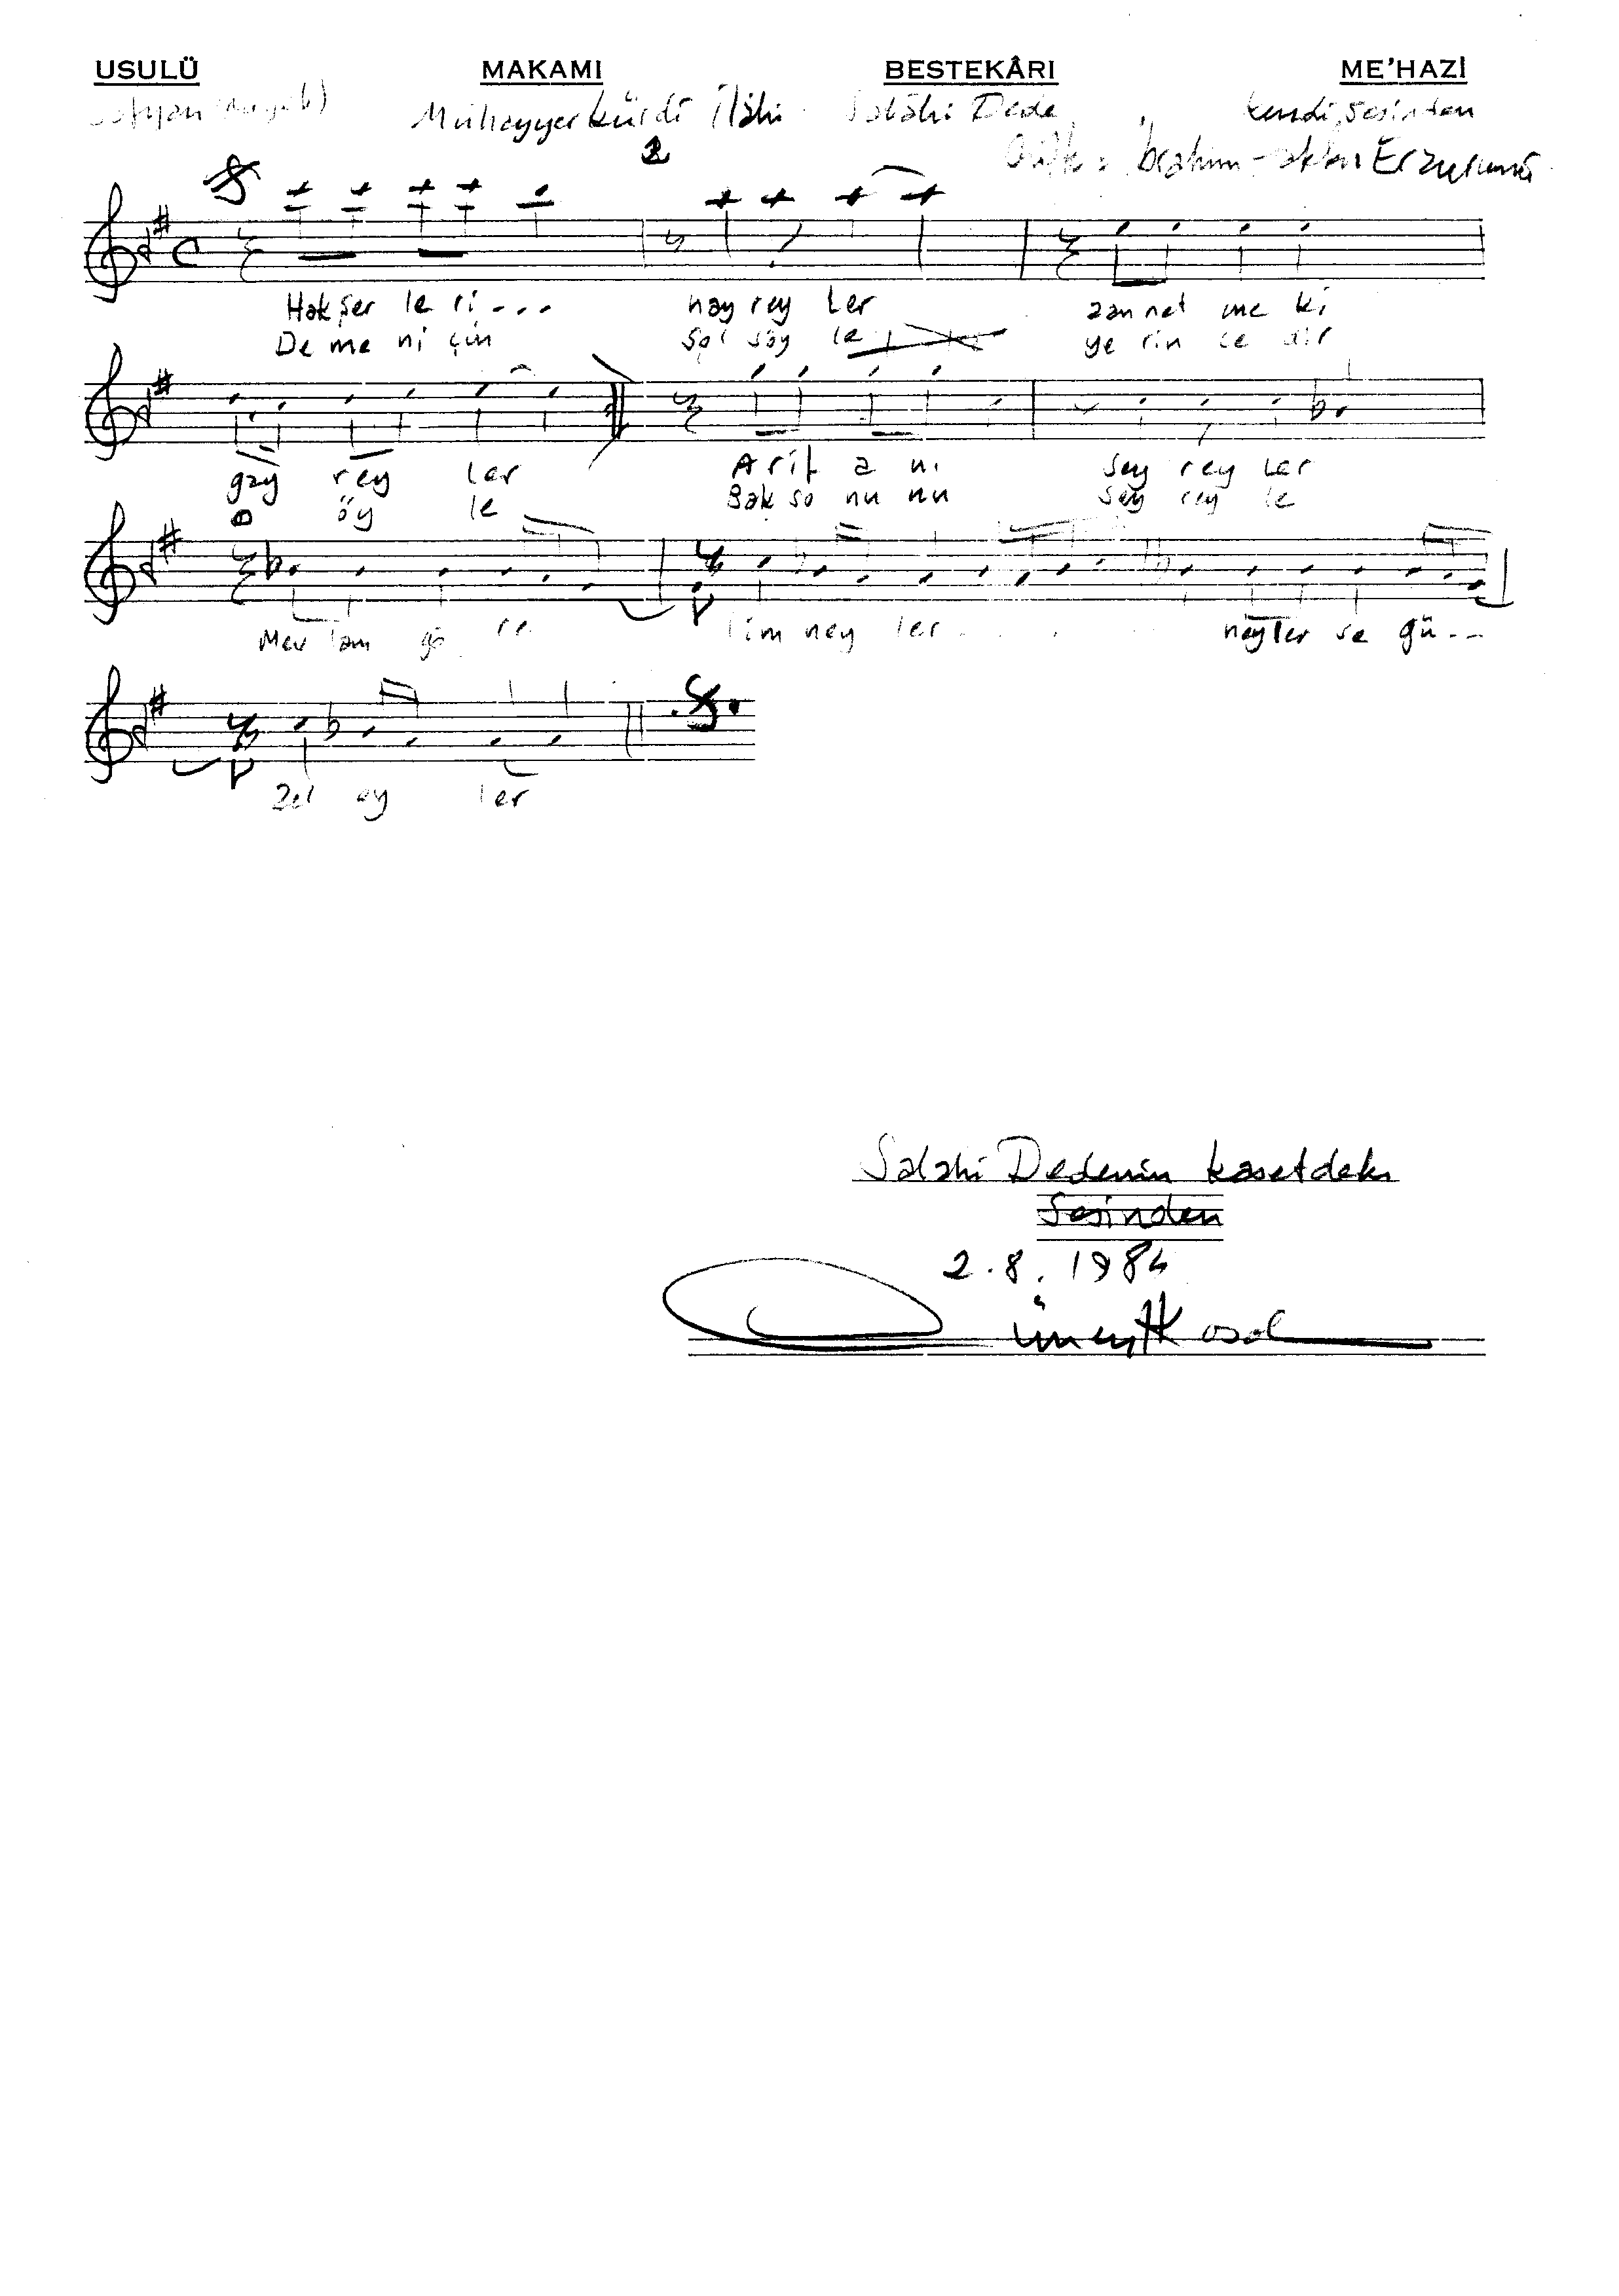 USULÜ MAKAMI BESTEKÂRI ME'HAZİ
Sofyan Muhayyer kürdî İlâhi Salâhi Dede kendi sesinden
2 Güfte: İbrahim Hakkı Erzurumî
Hak şer le ri ... hay rey ler zan net me ki
De me ni çin şöl söy le ye rin ce dir
gay rey ler A rif a nı sey rey ler
o öy le Bak so nu nu sey rey le
Mev lam gö re lim ney ler . . . ney ler se gü --
zel ey ler
Salahi Dedenin kasetdeki
Sesinden
2.8.1984
Cüneyt Kosal